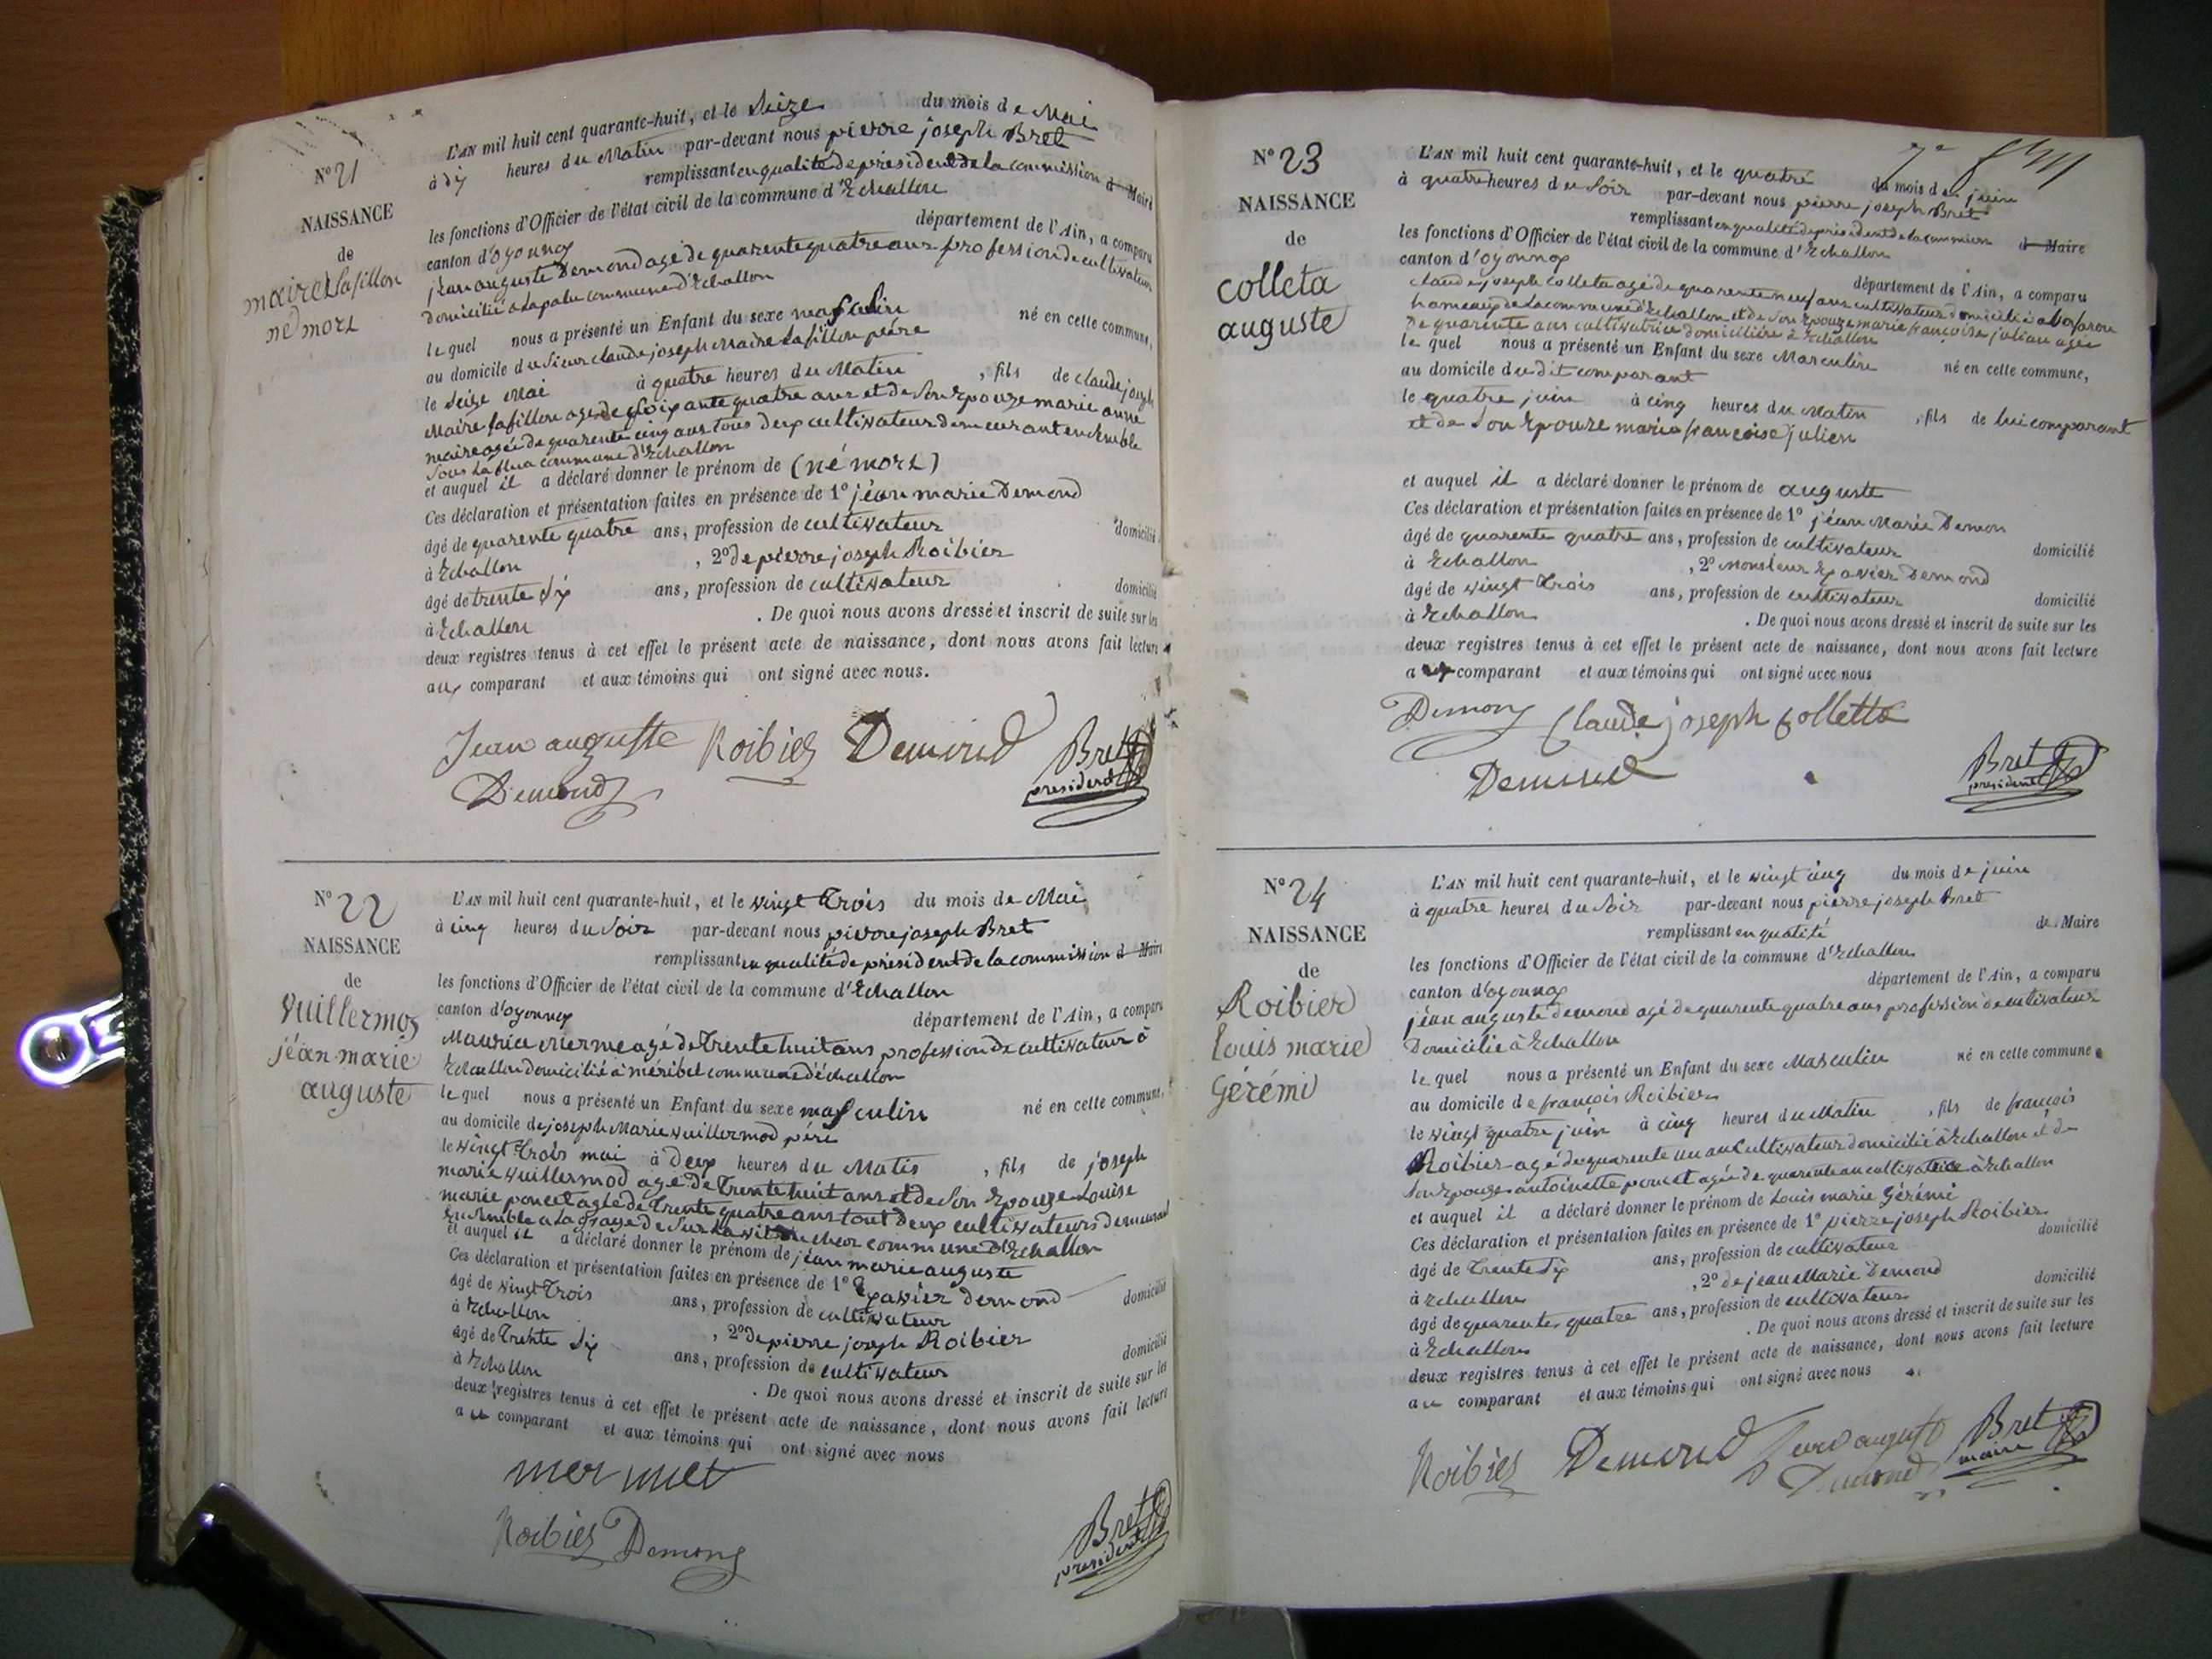 N° 21
NAISSANCE
de
maire Lafillon
né mort
L'AN mil huit cent quarante-huit, et le Seize du mois de Mai
à dix heures du Matin par-devant nous pierre joseph Bret
remplissant en qualité de président de la commission d Maire
les fonctions d'Officier de l'état civil de la commune d'Echallon
canton d'oyonnax département de l'Ain, a comparu
jean auguste Demond agé de quarente quatre ans profession de cultivateur
domicilié a Lapalu commune d'Echallon
le quel nous a présenté un Enfant du sexe masculin né en cette commune,
au domicile du Sieur claude joseph Maire Lafillon père
le Seize Mai à quatre heures du Matin, fils de claude joseph
Maire Lafillon agé de Soixante quatre ans et de Son Epouze marie anne
maire agée de quarente cinq ans tous deux cultivateur demeurant enSemble
Sous la commune d'Echallon
et auquel il a déclaré donner le prénom de (né mort)
Ces déclaration et présentation faites en présence de 1° jéan marie Demond
âgé de quarente quatre ans, profession de cultivateur domicilié
à Echallon, 2° de pierre joseph Roibier
âgé de trente Six ans, profession de cultivateur domicilié
à Echallon. De quoi nous avons dressé et inscrit de suite sur les
deux registres tenus à cet effet le présent acte de naissance, dont nous avons fait lecture
aux comparant et aux témoins qui ont signé avec nous.
Jean auguste Roibier Demond Bret
Demond président
N° 22
NAISSANCE
de
Vuillermoz
jéan marie
auguste
L'AN mil huit cent quarante-huit, et le vingt Trois du mois de Mai
à cinq heures du Soir par-devant nous pierre joseph Bret
remplissant en qualité de président de la commission d Maire
les fonctions d'Officier de l'état civil de la commune d'Echallon
canton d'oyonnax département de l'Ain, a comparu
Maurice agé de Trente huit ans profession de cultivateur à
Echallon domicilié à méribel commune d'échallon
le quel nous a présenté un Enfant du sexe masculin né en cette commune,
au domicile de joseph Marie vuillermod père
le vingt Trois mai à deux heures du Matis, fils de joseph
marie vuillermod agé de Trente huit ans et de Son Epouze Louise
marie poncet agée de Trente quatre ans tout deux cultivateurs demeurant
EnSemble a La commune d'Echallon
et auquel il a déclaré donner le prénom de jéan marie auguste
Ces déclaration et présentation faites en présence de 1° Exavier demond
âgé de vingt Trois ans, profession de cultivateur domicilié
à Echallon, 2° de pierre joseph Roibier
âgé de Trente Six ans, profession de cultivateur domicilié
à Echallon. De quoi nous avons dressé et inscrit de suite sur les
deux registres tenus à cet effet le présent acte de naissance, dont nous avons fait lecture
au comparant et aux témoins qui ont signé avec nous
mermet
Roibier Demond Bret
président
N° 23
NAISSANCE
de
colleta
auguste
L'AN mil huit cent quarante-huit, et le quatre du mois de juin
à quatre heures du Soir par-devant nous pierre joseph Bret
remplissant en qualité de président de la commision d Maire
les fonctions d'Officier de l'état civil de la commune d'Echallon
canton d'oyonnax
département de l'Ain, a comparu
claude joseph Colleta agé de quarente neuf ans cultivateur domicilié a
hameaux de La commune d'Echallon et de Son Epouze marie françoise julian agée
De quarente ans cultivatrice domicilière à Echallon
le quel nous a présenté un Enfant du sexe Masculin né en cette commune,
au domicile du dit comparant
le quatre juin à cinq heures du Matin, fils de lui comparant
et de Son Epouze marie françoise julien
et auquel il a déclaré donner le prénom de auguste
Ces déclaration et présentation faites en présence de 1° jéan Marie Demon
âgé de quarente quatre ans, profession de cultivateur domicilié
à Echallon, 2° Monsieur Exavier Demond
âgé de vingt Trois ans, profession de cultivateur domicilié
à Echallon. De quoi nous avons dressé et inscrit de suite sur les
deux registres tenus à cet effet le présent acte de naissance, dont nous avons fait lecture
a comparant et aux témoins qui ont signé avec nous
Demond Claude joseph Colletta
Demond Bret
président
N° 24
NAISSANCE
de
Roibier
Louis marie
Gérémi
L'AN mil huit cent quarante-huit, et le vingt cinq du mois de juin
à quatre heures du Soir par-devant nous pierre joseph Bret
remplissant en qualité de Maire
les fonctions d'Officier de l'état civil de la commune d'Echallon
canton d'oyonnax département de l'Ain, a comparu
jéan auguste demond agé de quarente quatre ans profession de cultivateur
Domicilié à Echallon
le quel nous a présenté un Enfant du sexe Masculin né en cette commune
au domicile de françois Roibier
le vingt quatre juin à cinq heures du Matin, fils de françois
Roibier agé de quarente un an Cultivateur domicilié à Echallon et de
Son Epouze antoinette poncet agée de quarente an cultivatrice à Echallon
et auquel il a déclaré donner le prénom de Louis marie Gérémi
Ces déclaration et présentation faites en présence de 1° pierre joseph Roibier
âgé de Trente Six ans, profession de cultivateur domicilié
à Echallon, 2° de jean Marie Demond
âgé de quarente quatre ans, profession de cultivateur domicilié
à Echallon. De quoi nous avons dressé et inscrit de suite sur les
deux registres tenus à cet effet le présent acte de naissance, dont nous avons fait lecture
au comparant et aux témoins qui ont signé avec nous
Roibier Demond Jean auguste Bret
Demond maire